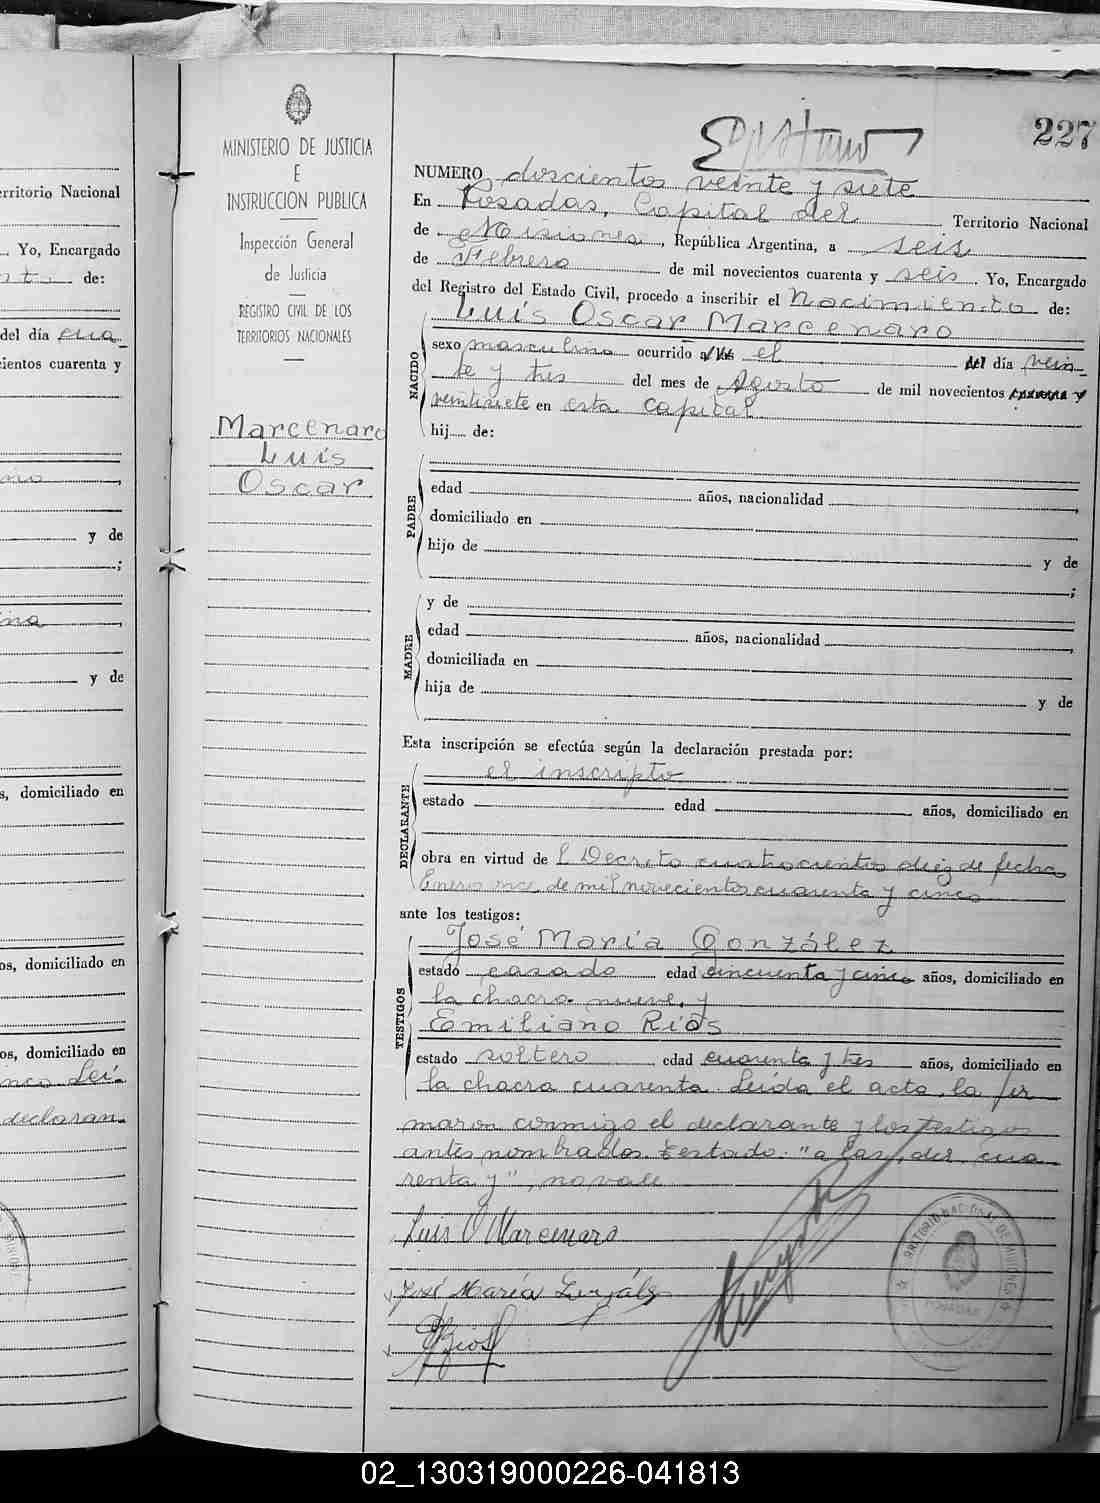 227
MINISTERIO DE JUSTICIA
E
INSTRUCCION PUBLICA
Inspección General
de Justicia
REGISTRO CIVIL DE LOS
TERRITORIOS NACIONALES
Marcenaro
Luís
Oscar
NUMERO doscientos veinte y siete
En Posadas, Capital del Territorio Nacional
de Misiones, República Argentina, a seis
de Febrero de mil novecientos cuarenta y seis Yo, Encargado
del Registro del Estado Civil, procedo a inscribir el Nacimiento de:
Luís Oscar Marcenaro
NACIDO
sexo masculino ocurrido a las el del día vein-
te y tres del mes de Agosto de mil novecientos cuarenta y
veintisiete en esta capital
hij de:
PADRE
edad años, nacionalidad ,
domiciliado en
hijo de y de
;
MADRE
y de
edad años, nacionalidad ,
domiciliada en
hija de y de
Esta inscripción se efectúa según la declaración prestada por:
DECLARANTE
el inscripto
estado edad años, domiciliado en
obra en virtud de l Decreto cuatrocientos diez de fecha
Enero once de mil novecientos cuarenta y cinco
ante los testigos:
TESTIGOS
José María González
estado casado edad cincuenta y cinco años, domiciliado en
la chacra nueve, y
Emiliano Ríos
estado soltero edad cuarenta y tres años, domiciliado en
la chacra cuarenta. Leída el acta, la fir
maron conmigo el declarante y los testigos
antes nombrados. Testado: "a las, del, cua
renta y", no vale
Luis O Marcenaro
José María González
Rios
POSADAS
erritorio Nacional
. Yo, Encargado
de:
del día cua-
cientos cuarenta y
,
y de
;
,
y de
s, domiciliado en
os, domiciliado en
os, domiciliado en
declaran-
02_130319000226-041813